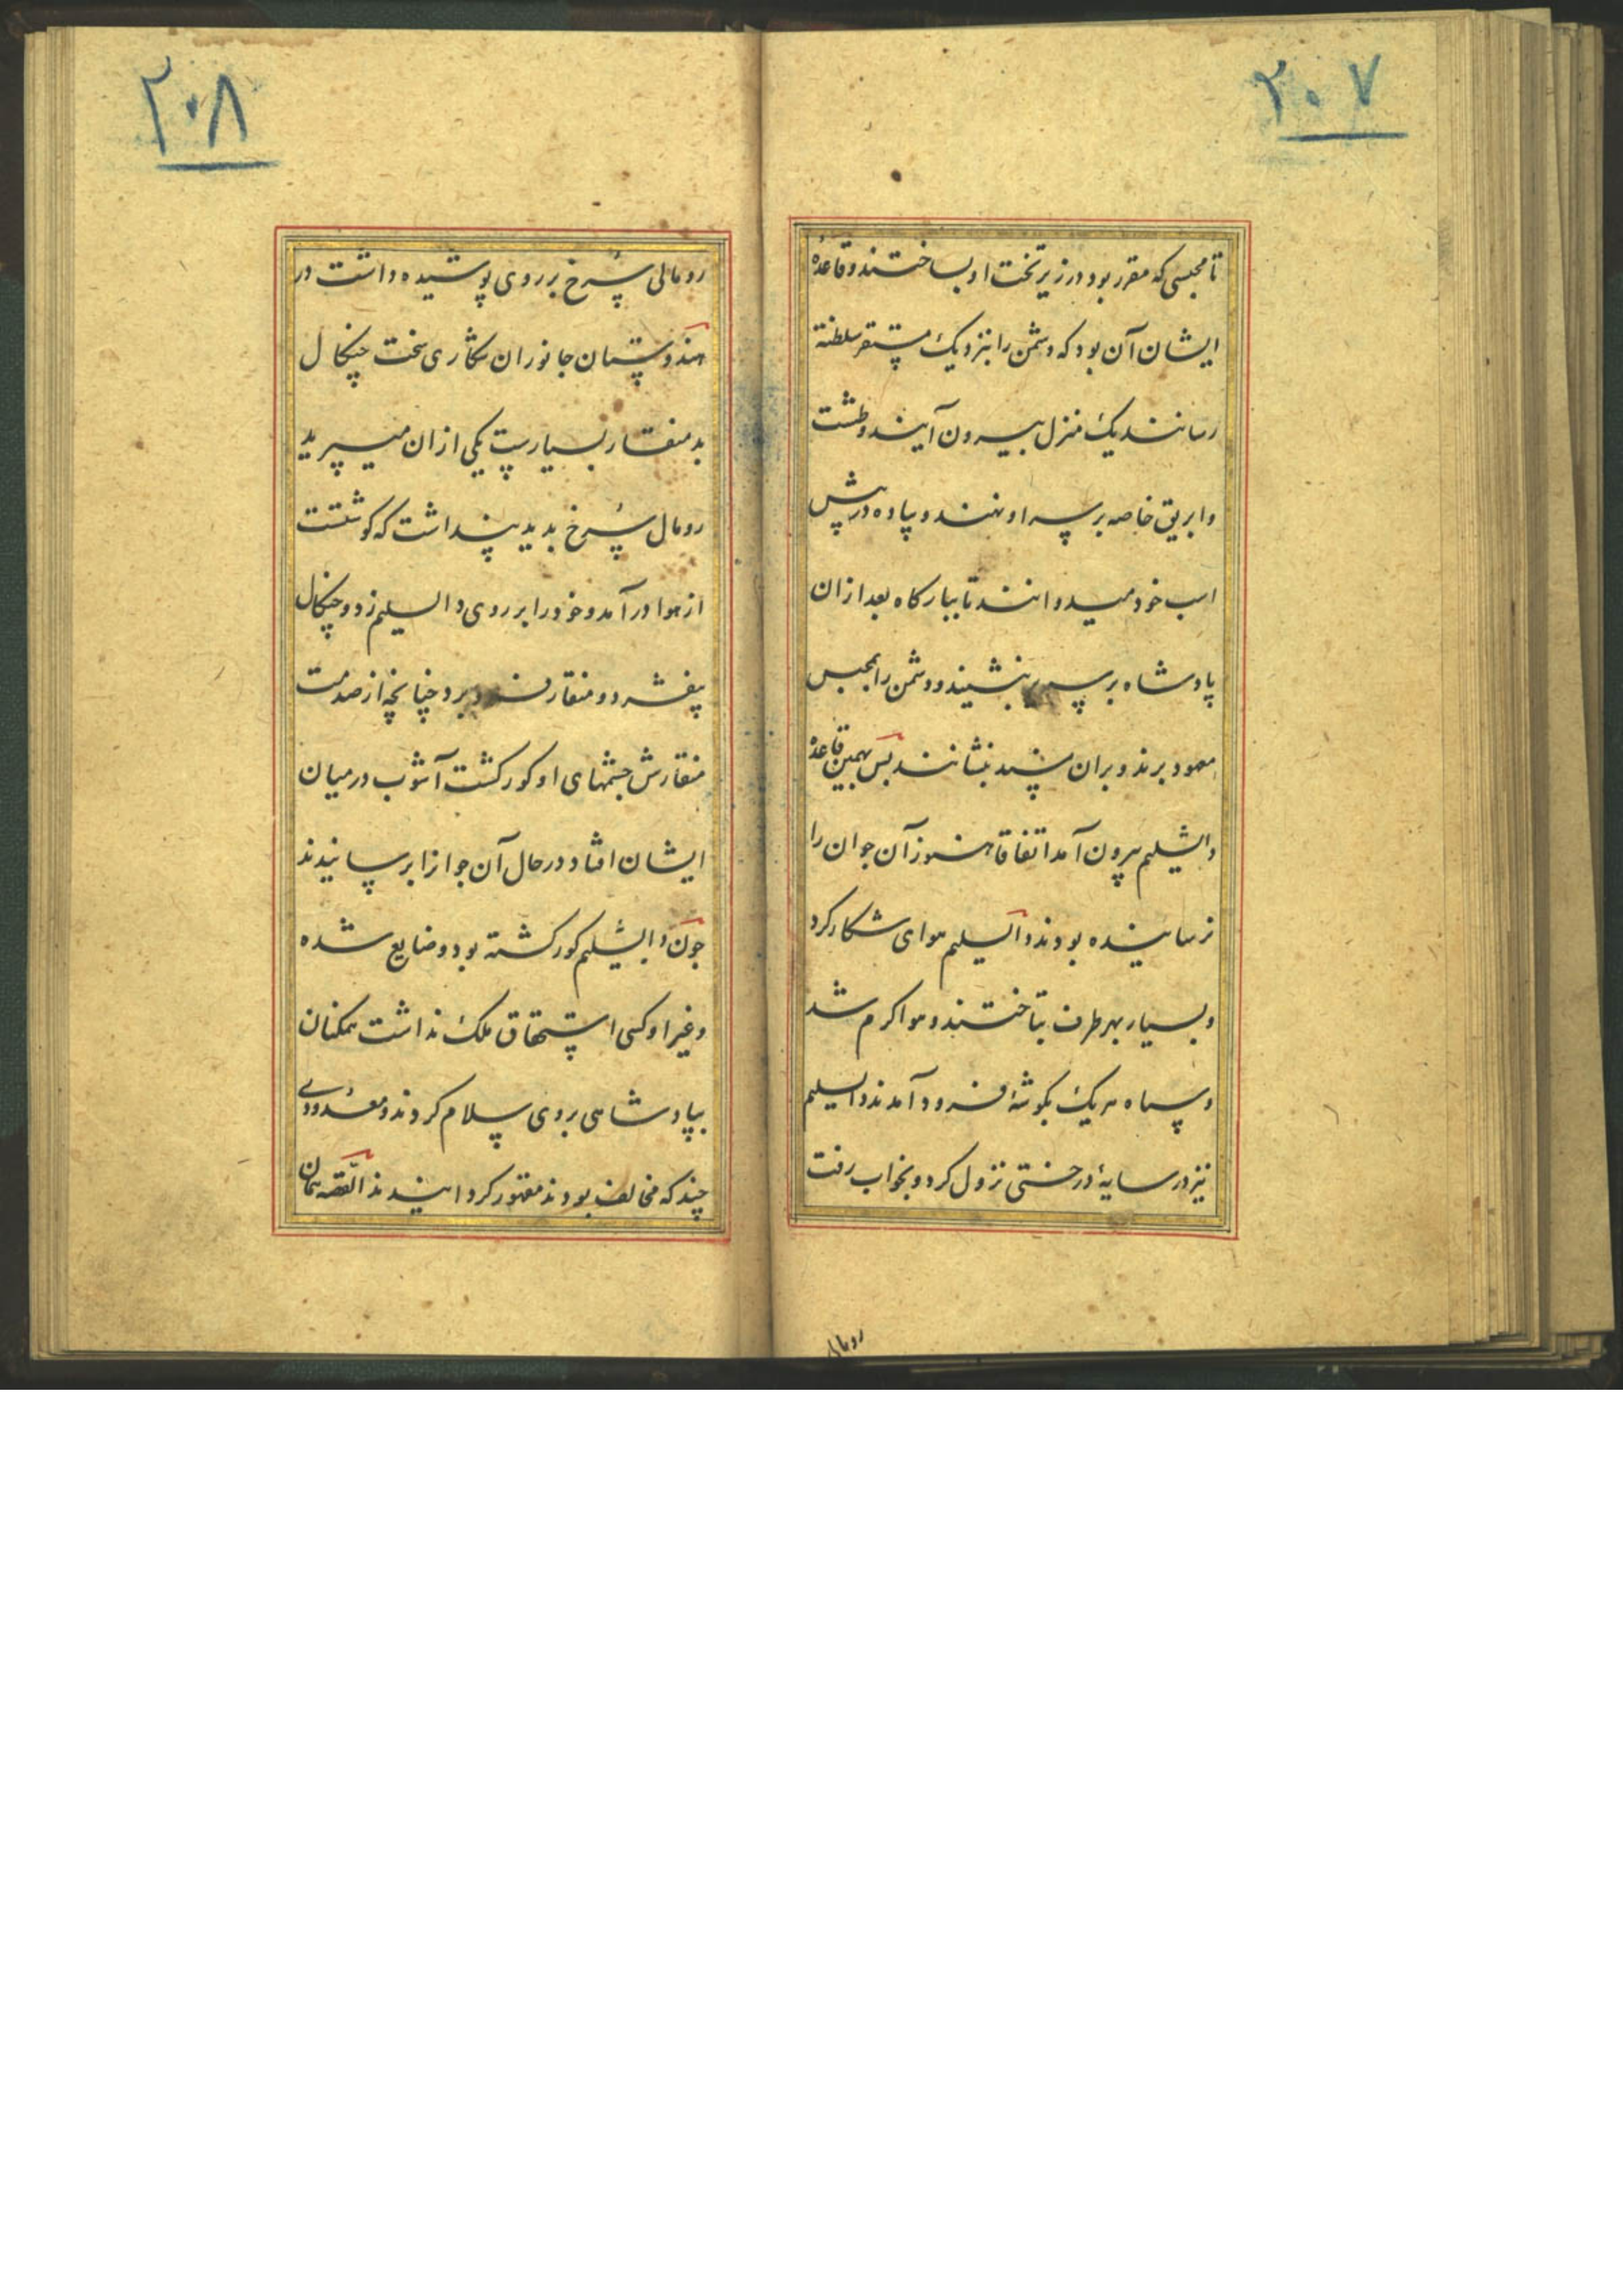 ۲۰۷
تا محبسی که مقرر بود در زیر تخت او بساختند و قاعدهٔ
ایشان آن بود که دشمن را بنزدیک مستقر سلطنة
رسانند یک منزل بیرون آیند و طشت
و ابریق خاصه بر سر او نهند و پیاده در پیش
اسب خود میدوانند تا ببارکاه بعد ازان
پادشاه بر سریر بنشیند و دشمن را بمحبس
معهود برند و بران نشانند پس بهمین قاعدهٔ
دابشلیم بیرون آمد اتفاقا هنوز آن جوان را
نرسانیده بودند دابسلیم هوای شکار کرد
و بسیار بهر طرف بتاختند و هوا کرم شد
و سپاه هر یک بکوشهٔ فرود آمدند دابسلیم
نیز در سایهٔ درختی نزول کرد و بخواب رفت
رومالی
۲۰۸
رومالی سرخ بر روی پوشیده داشت در
هندوستان جانوران شکاری سخت چنکال
بد منقار بسیارست یکی ازان میپرید
رومال سرخ بدید پنداشت که کوشتست
از هوا درآمد و خود را بر روی دابسلیم زد و چنکال
بیفشرد و منقار فرو برد چنانچه از صدمت
منقارش چشمهای او کور کشت آشوب در میان
ایشان افتاد در حال آن جوانرا برسانیدند
چون دابشلیم کور کشته بود و ضایع شده
و غیر او کسی استحقاق ملک نداشت همکنان
بپادشاهی بر وی سلام کردند و معدودے
چند که مخالف بودند مقهور کردانیدند القصه همان